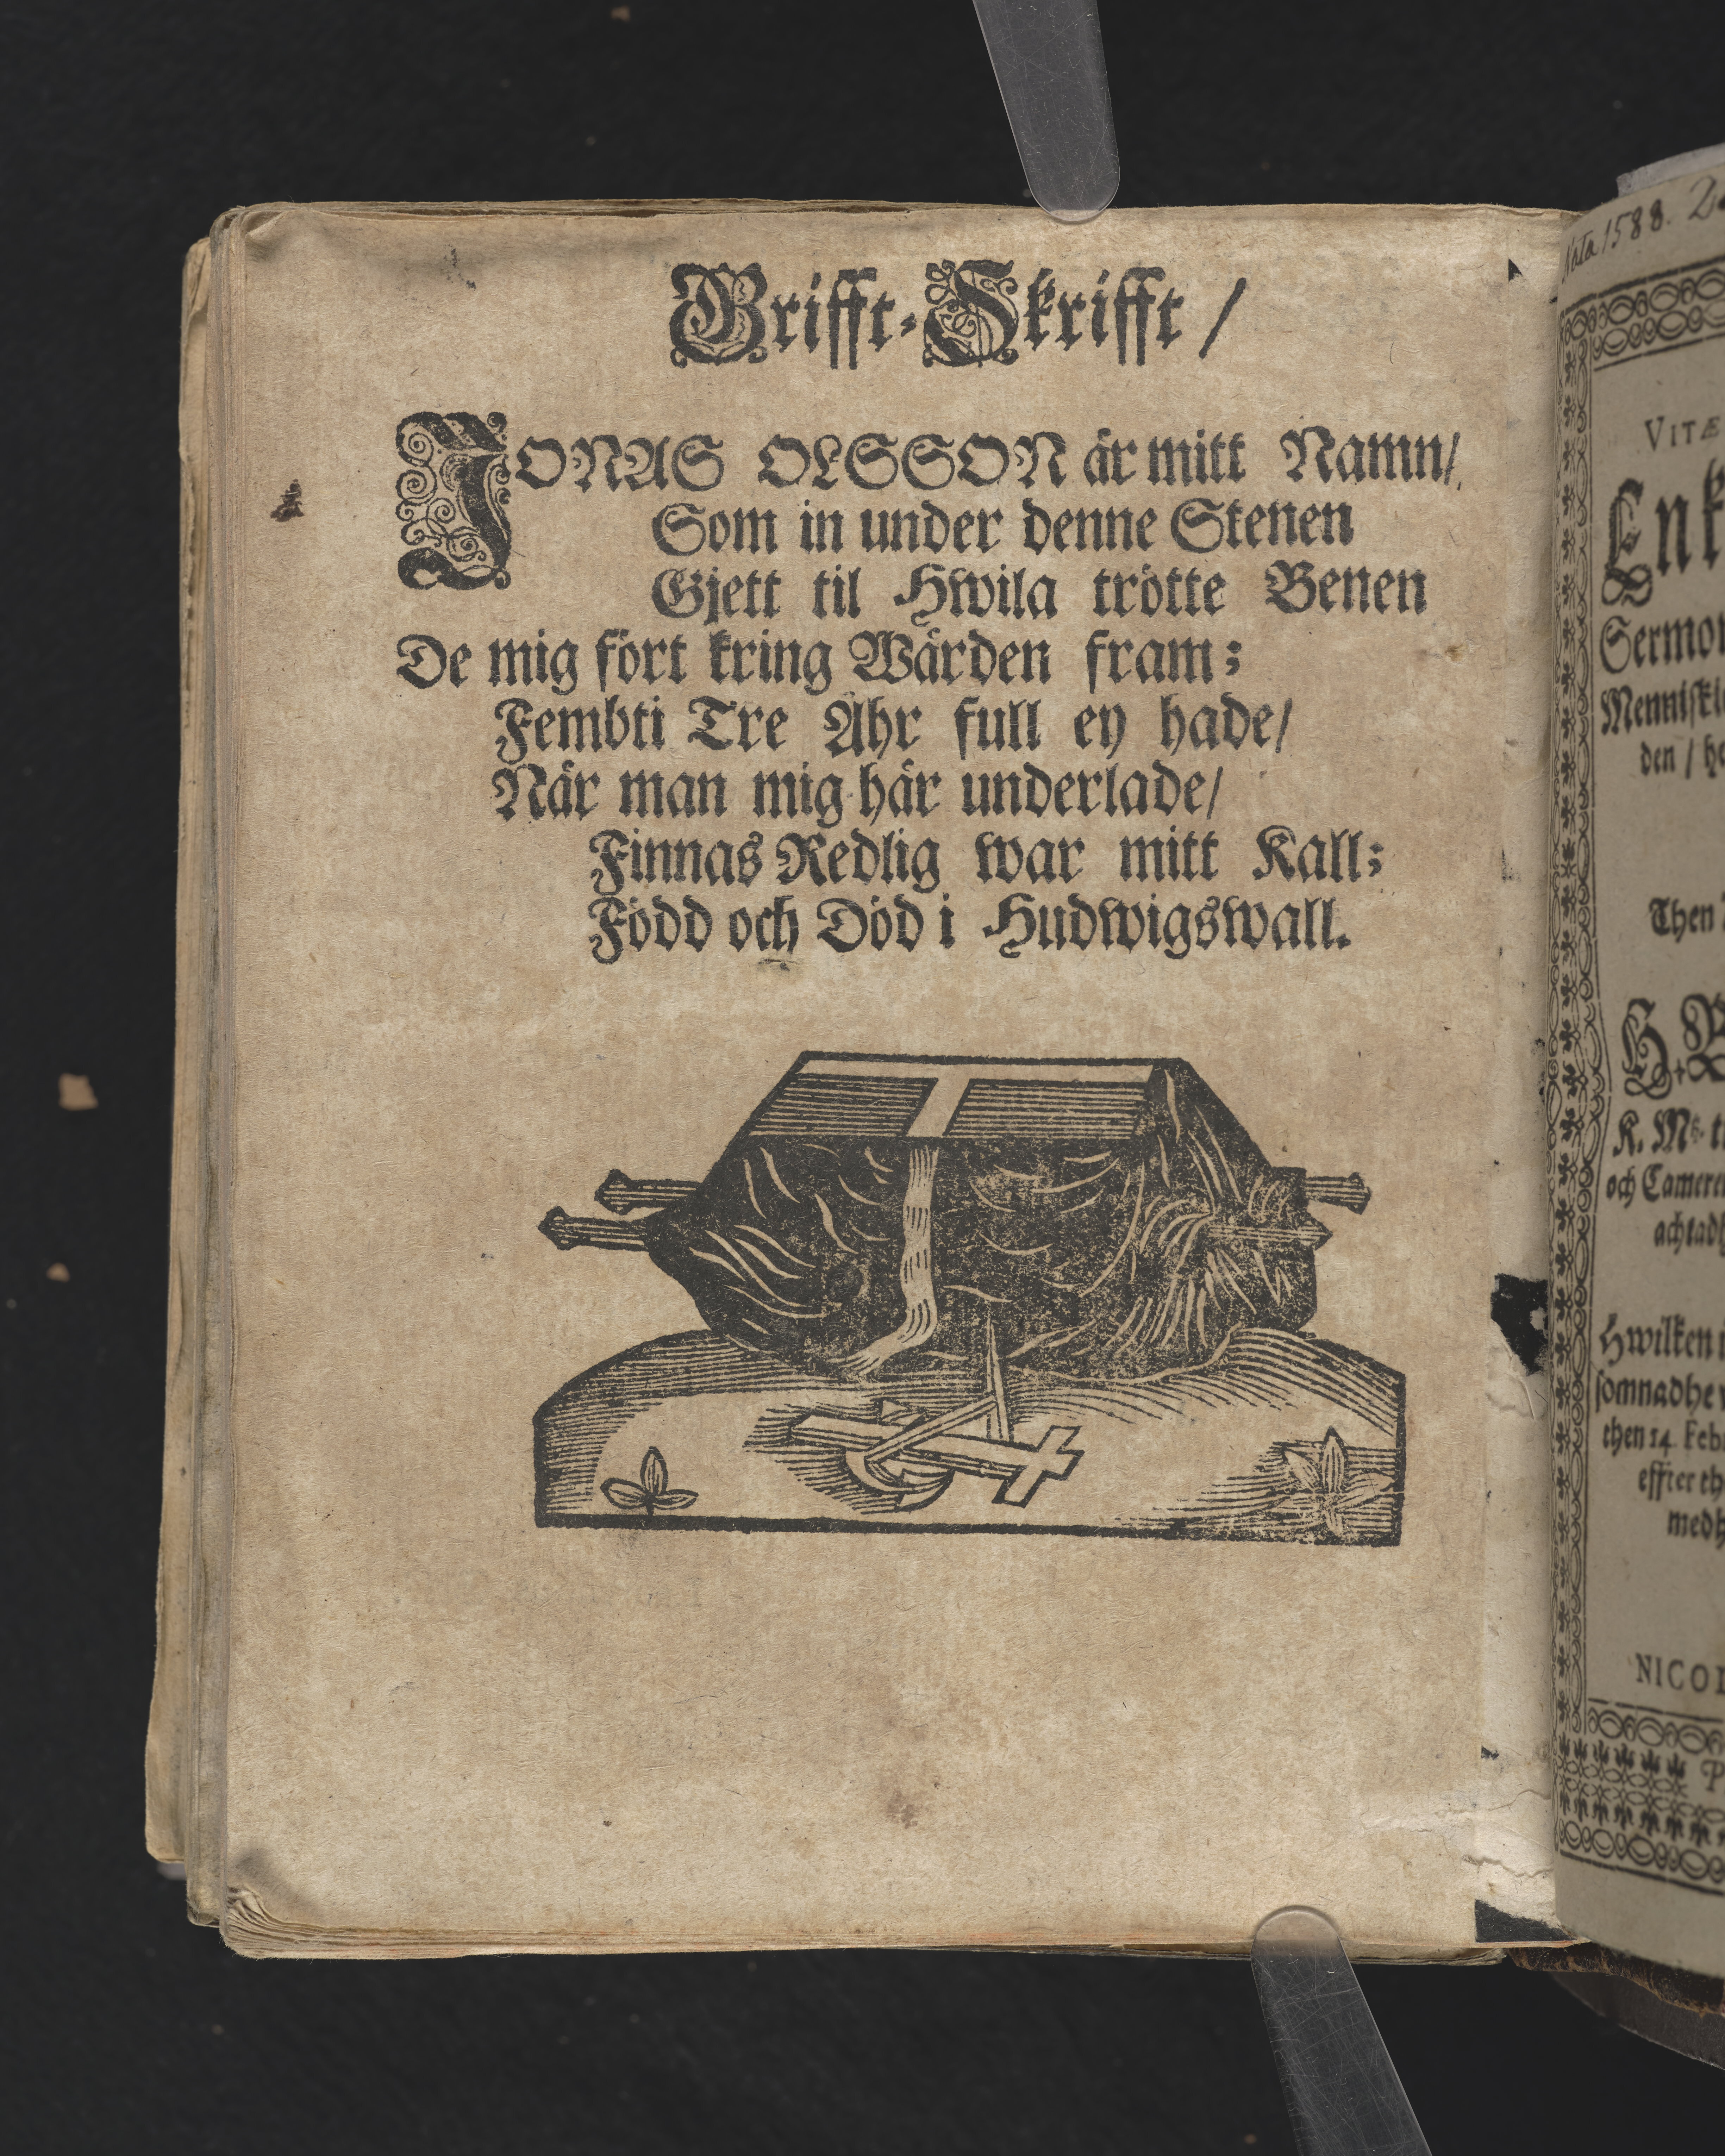 Grifft-Skrifft /
JONAS OLSSON är mitt Namn/
Som in under denne Stenen
Gjett til Hwila trötte Benen
De mig fört kring Wärden fram;
Fembti Tre Åhr full ey hade/
När man mig här underlade/
Finnas Redlig war mitt Kall;
Född och Död i Hudwigswall.
Nata 1588.
VITÆ
Sermon
den / he
Then
K. M
och Camere
achtadh
Hwilken
somnadhe
then 14. Feb
effter th
medh
NICOL